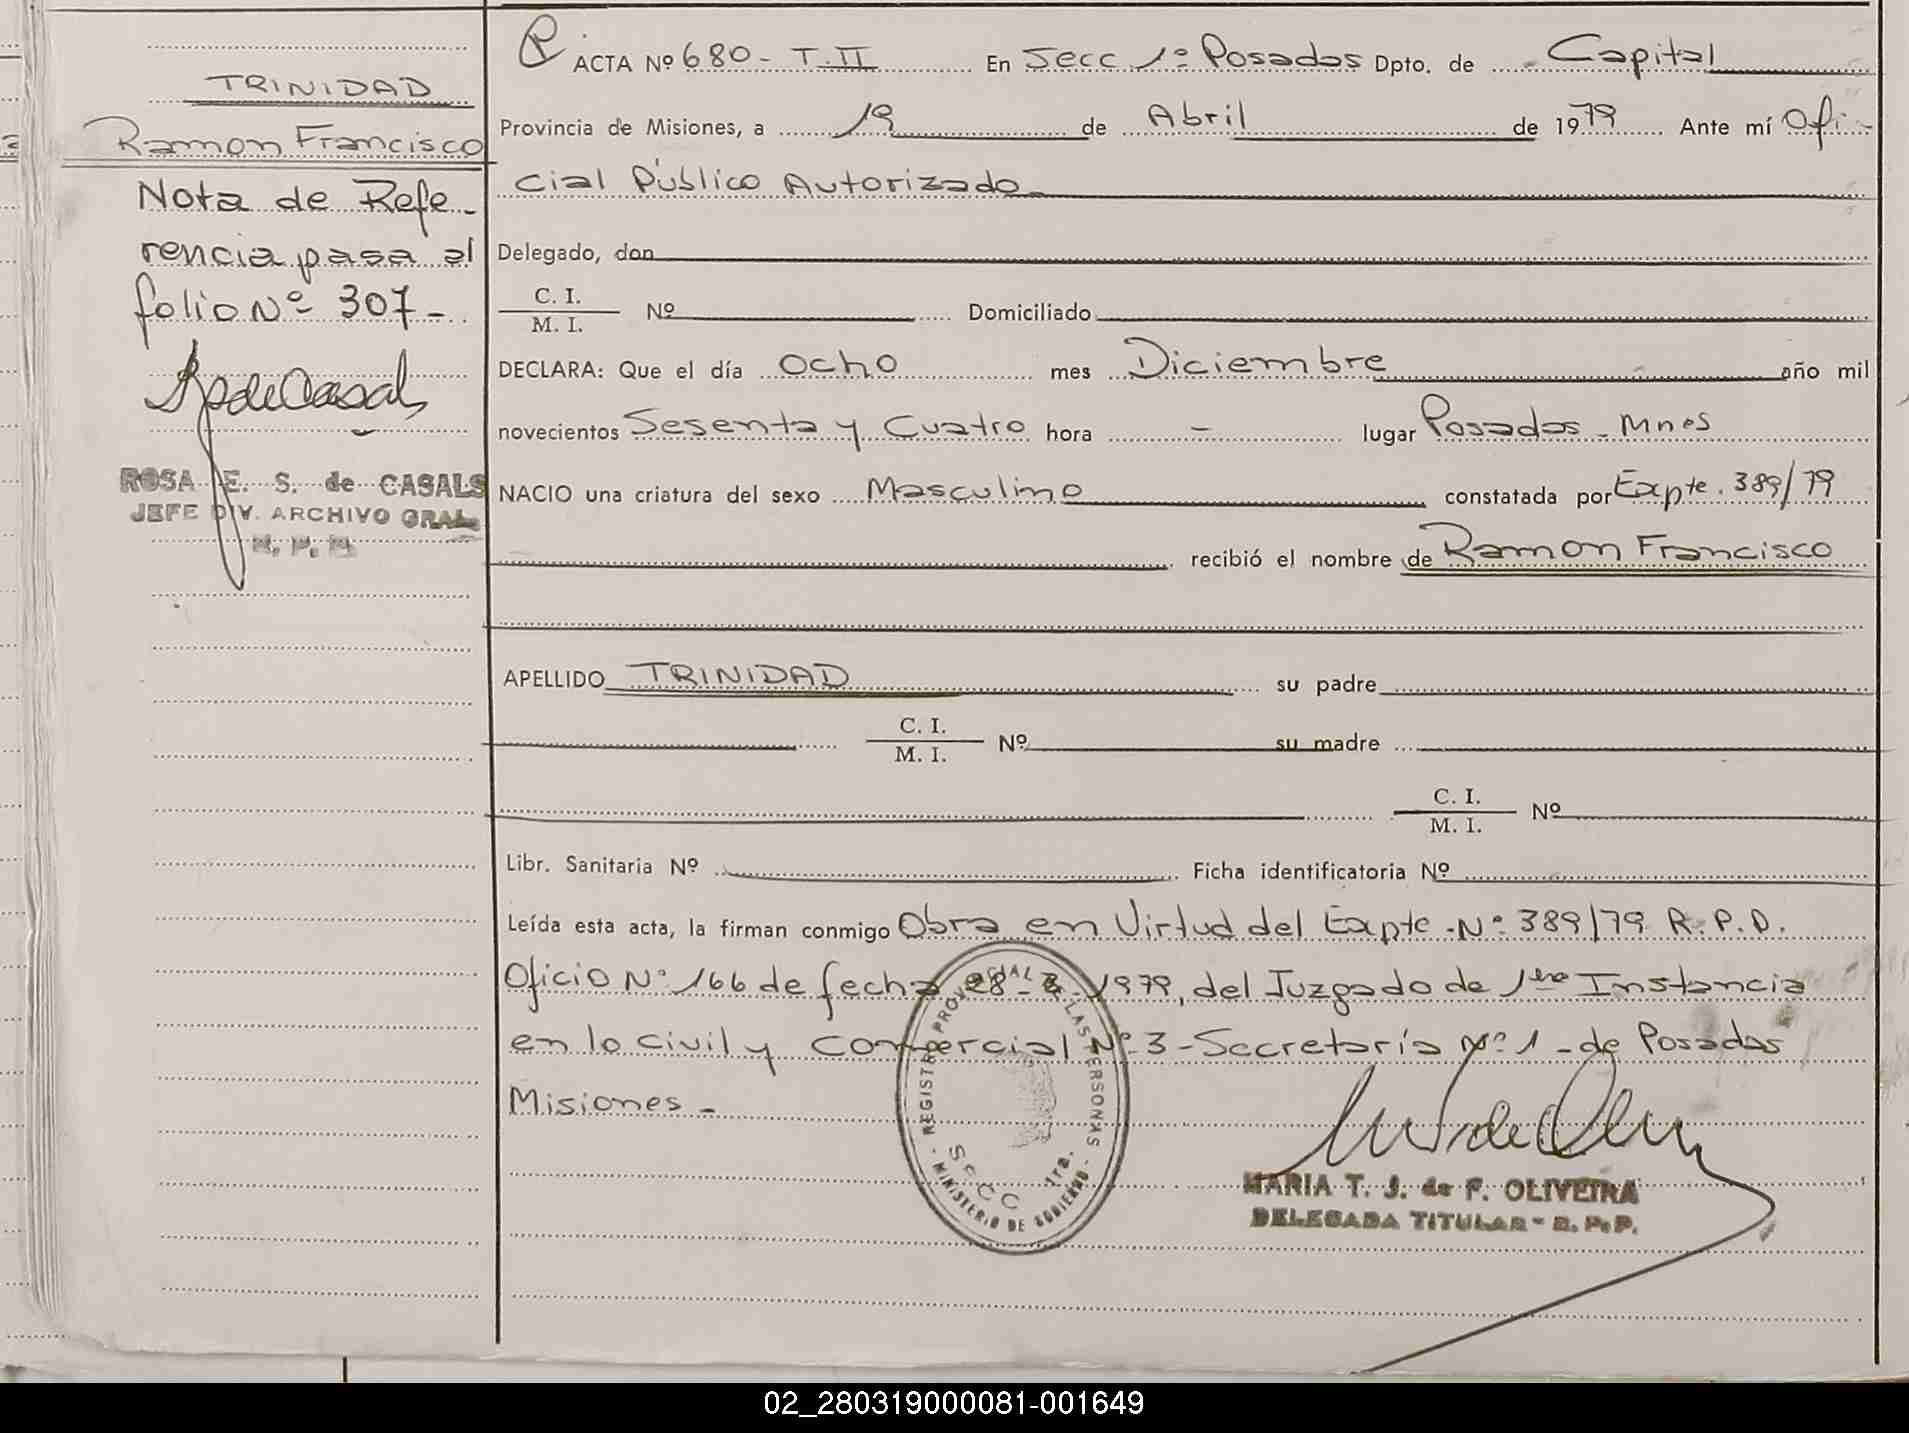 TRINIDAD
Ramon Francisco
Nota de Refe-
rencia pasa al
folio Nº 307-
ROSA E. S. de CASALS
JEFE DIV. ARCHIVO GRAL.
R. P. P.
ACTA Nº 680- T.II En Secc 1º Posadas Dpto. de Capital
Provincia de Misiones, a 19 de Abril de 1979 Ante mí Ofi-
cial Público Autorizado
Delegado, don
C. I.
M. I. Nº Domiciliado
DECLARA: Que el día Ocho mes Diciembre año mil
novecientos Sesenta y Cuatro hora - lugar Posadas - Mnes
NACIO una criatura del sexo Masculino constatada por Expte. 389/79
recibió el nombre de Ramon Francisco
APELLIDO TRINIDAD su padre
C. I.
M. I. Nº su madre
C. I.
M. I. Nº
Libr. Sanitaria Nº Ficha identificatoria Nº
Leída esta acta, la firman conmigo Obra en Virtud del Expte. Nº 389/79 R.P.D.
Oficio Nº 166 de fecha 28- -1979, del Juzgado de 1era Instancia
en lo civil y comercial Nº 3 - Secretaría Nº 1 - de Posadas
Misiones -
REGISTRO PROVINCIAL DE LAS PERSONAS
SECC 1ra.
- MINISTERIO DE GOBIERNO -
MARIA T. J. de F. OLIVEIRA
DELEGADA TITULAR - R. P. P.
02_280319000081-001649